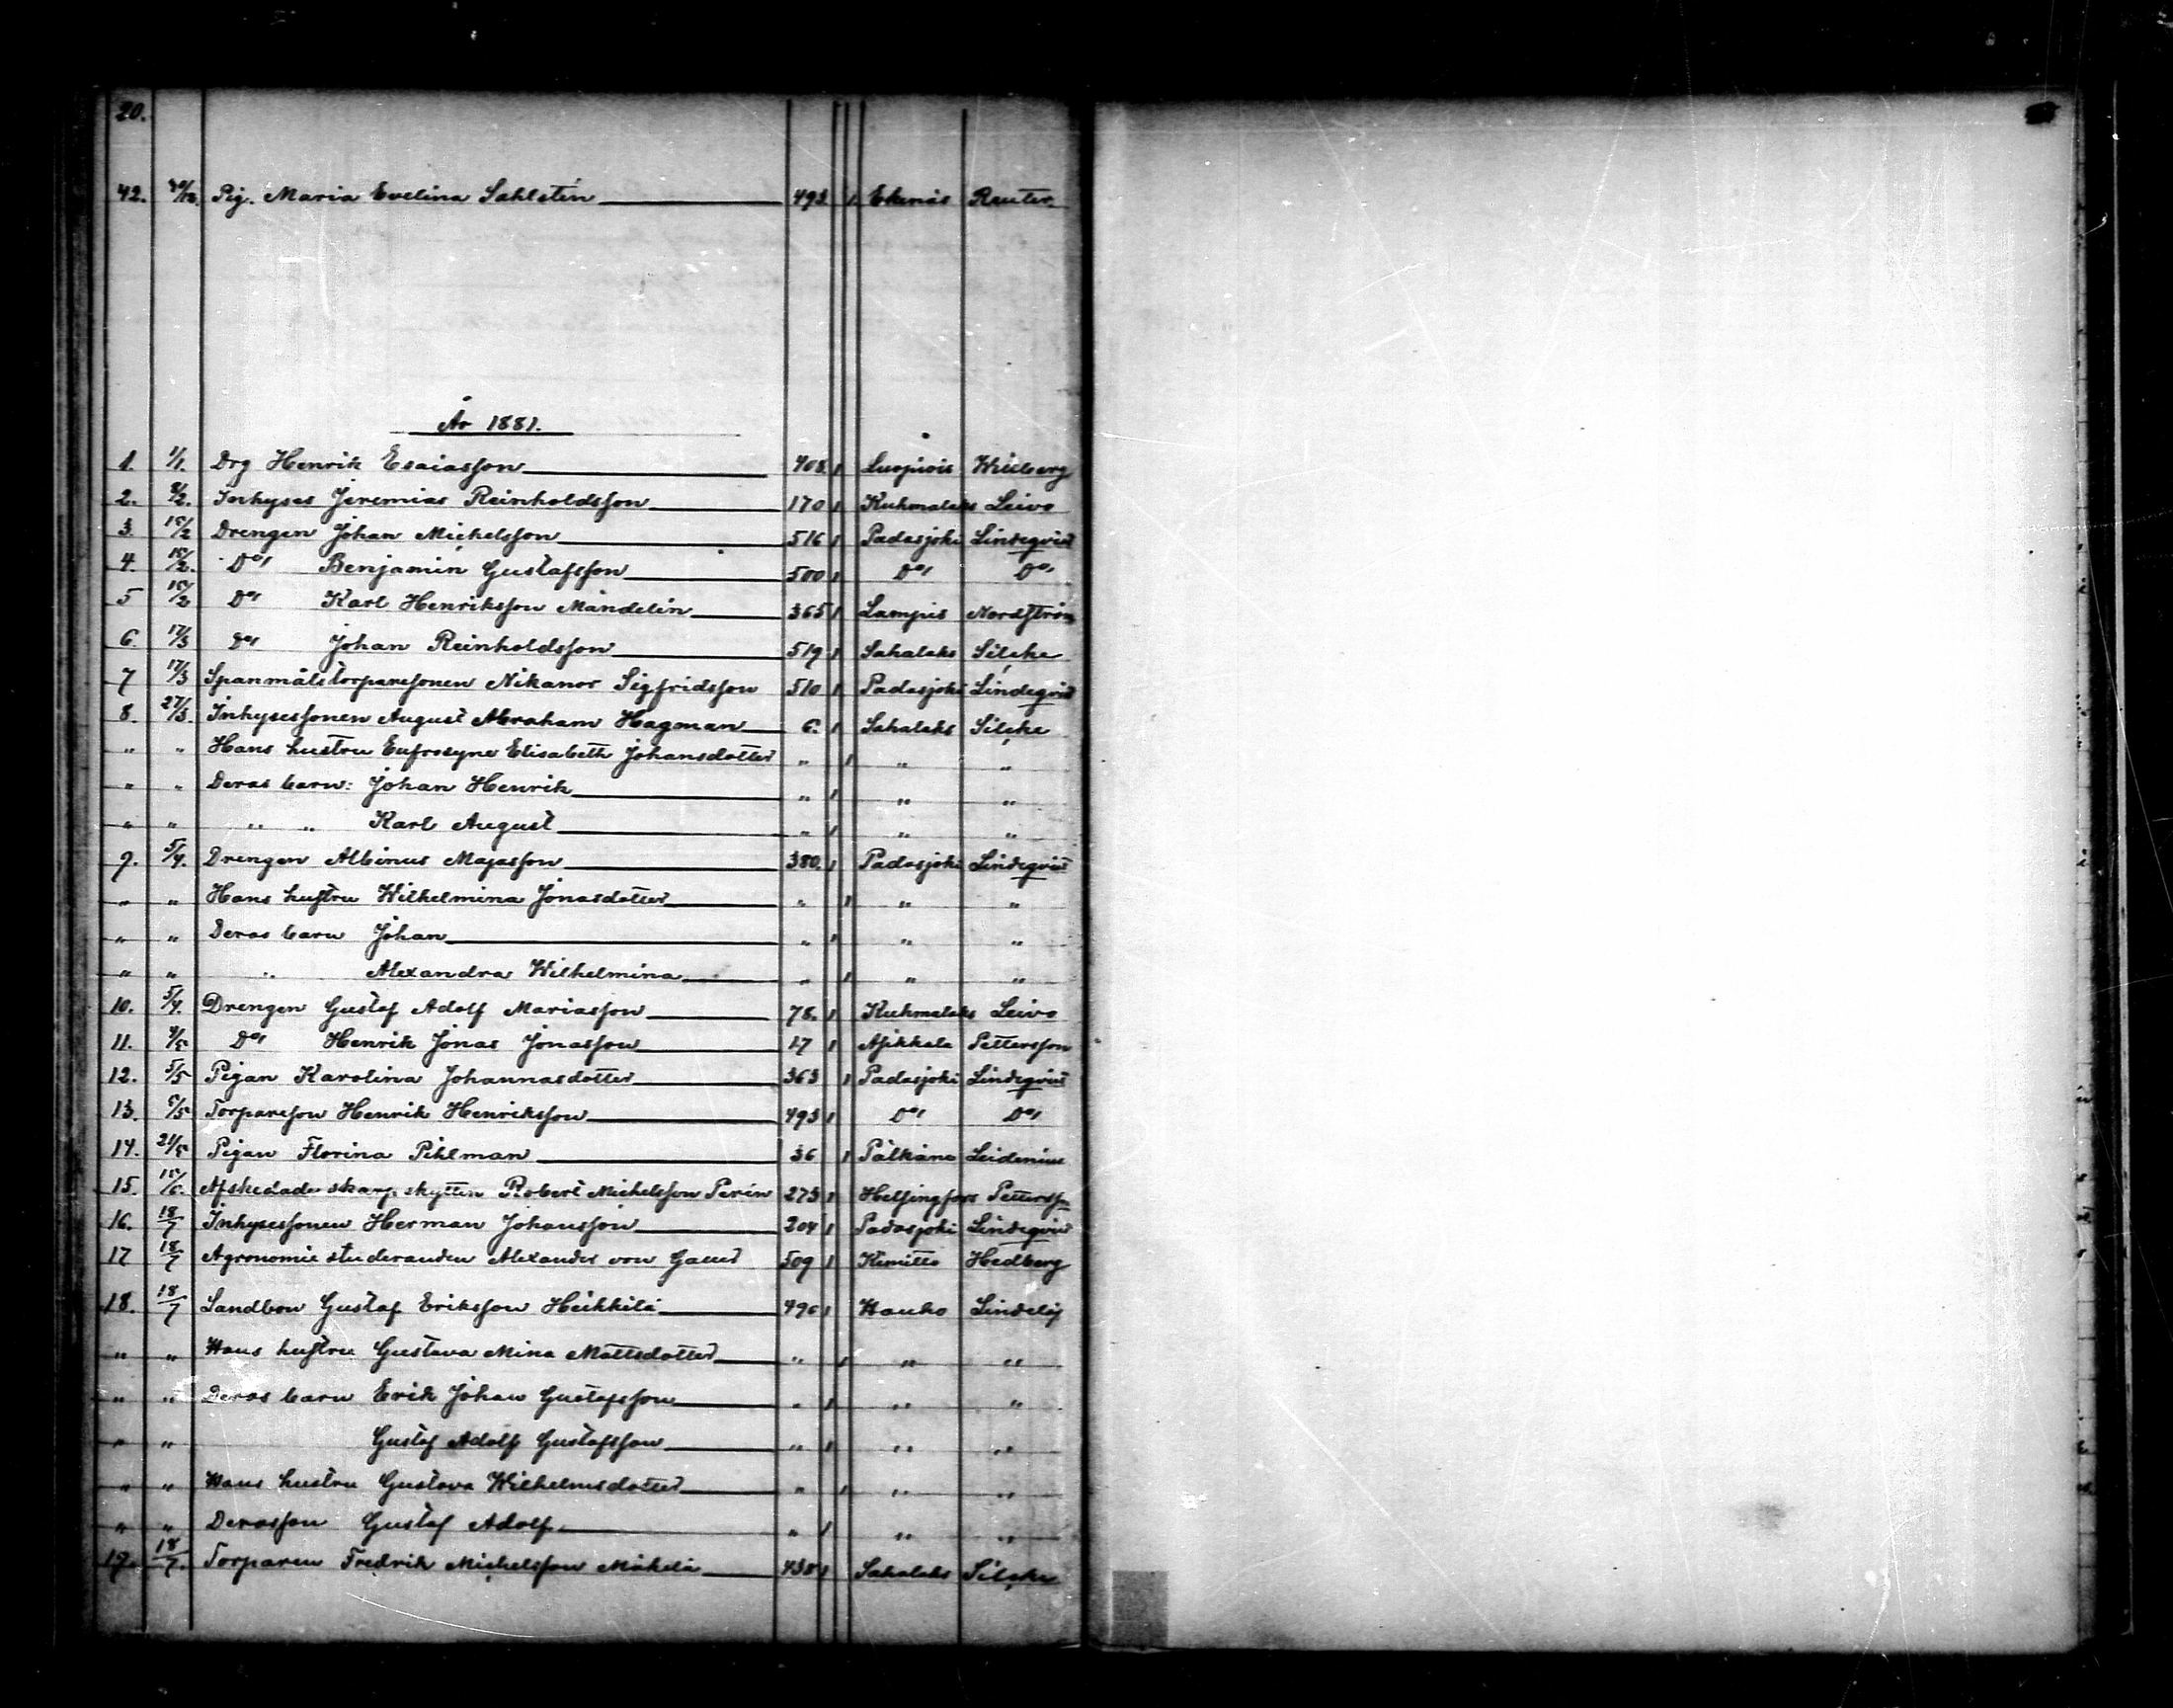 20.
42. Pig. Maria Evelina Sahlstén 493 Ekenäs Reuter
År 1881.
1. 1/1. Drg Henrik Esaiasson 408. Luopiois
2. 8/2. Inhyses Jeremias Reinholdsson 170 Kuhmalaks Leivo
3. 15/2 Drengen Johan Michelsson 516 Padasjoki Lindeqvist
4. 15/2. Do Benjamin Gustafsson 500 Do Do
5 15/2 Do Karl Henriksson Mandelin 365 Lampis Nordström
6. 17/3 Do Johan Reinholdsson 519 Sahalaks Silcke
7 17/3 Spanmålstorparesonen Nikanor Sigfridsson 510 Padasjoki Lindeqvist
8. 27/3. Inhysessonen August Abraham Hagman 6. Sahalaks Silcke
" " Hans hustru Eufrosyne Elisabeth Johansdotter " " "
" " Deras barn: Johan Henrik " " "
" " " " Karl August " " "
9. 5/4. Drengen Albinus Majasson 380. Padasjoki Lindeqvist
" " Hans hustru Wilhelmina Jonasdotter " " "
" " Deras barn Johan " " "
" " " Alexandra Wilhelmina " " "
10. 5/4. Drengen Gustaf Adolf Mariasson 78. Kuhmalaks Leivo
11. 4/5 Do Henrik Jonas Jonasson 17 Asikkala Pettersson
12. 5/5 Pigan Karolina Johannasdotter 363 Padasjoki Lindeqvist
13. 5/5 Torpareson Henrik Henriksson 493 Do Do
14. 21/5 Pigan Florina Pihlman 36 Pälkäne Leidenius
15. 15/6. Afskedade skarpskytten Robert Michelsson Perin 273 Helsingfors Pettersson
16. 18/7 Inhysessonen Herman Johansson 204 Padasjoki Lindeqvist
17 18/7 Agronomie studeranden Alexander von 509 Kimitto Hedberg
18. 18/7 Landbon Gustaf Eriksson Heikkilä 496 Hauho Lindelöf
" " Hans hustru Gustava Mina Mattsdotter " " "
" " Deras barn Erik Johan Gustafsson " " "
" " Gustaf Adolf Gustafsson " " "
" " Hans hustru Gustava Wilhelmsdotter " " "
" " Derasson Gustaf Adolf " " "
19. 18/7. Torparen Fredrik Michelsson Mäkelä 438 Sahalaks Silcke